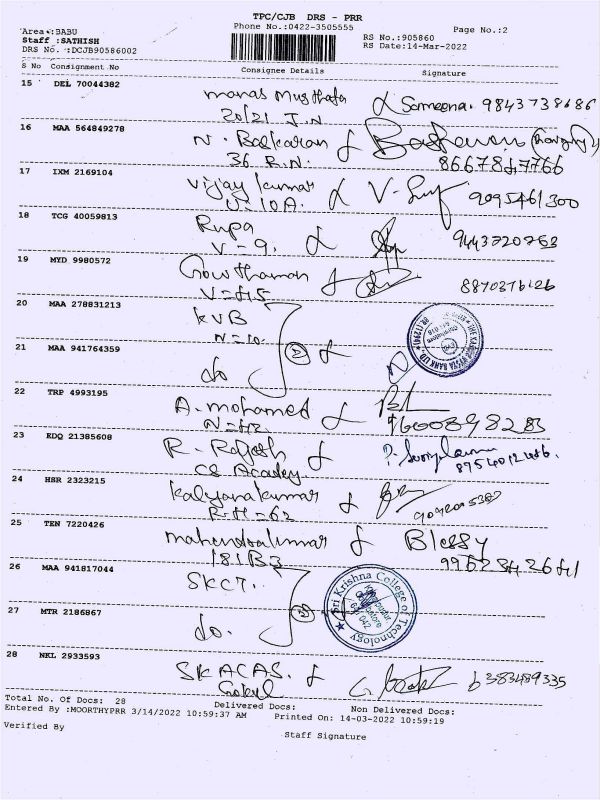 TPC/CJB DRS - PRR
Area :BABU Phone No.:0422-3505555 Page No.:2
Staff :SATHISH RS No.:905860
DRS No. :DCJB90586002 RS Date:14-Mar-2022
S No Consignment No Consignee Details Signature
15 DEL 70044382 manas Musthafa Sameena. 9843738686
20/21 J.N
16 MAA 564849278 N. Baskaran
36 R.N. 8667847766
17 IXM 2169104 Vijay kumar 9095461300
U=10A.
18 TCG 40059813 Rupa 9443720753
V=9.
19 MYD 9980572 Gowthaman 8870376126
V=415
20 MAA 278831213 KVB
N=10.
21 MAA 941764359 do
22 TRP 4993195 A. mohamed
N=42 9600898283
23 EDQ 21385608 R. Rajesh
CS Academy 8754012486.
24 HSR 2323215 kalyanakumar
R.H=62
25 TEN 7220426 mahendrakumar Blessy
181B3 9952342641
26 MAA 941817044 SKCT.
Sri Krishna College of Technology
27 MTR 2186867 do.
28 NKL 2933593 SKACAS. 6383489335
Gokul
Total No. Of Docs: 28 Delivered Docs: Non Delivered Docs:
Entered By :MOORTHYPRR 3/14/2022 10:59:37 AM Printed On: 14-03-2022 10:59:19
Verified By Staff Signature